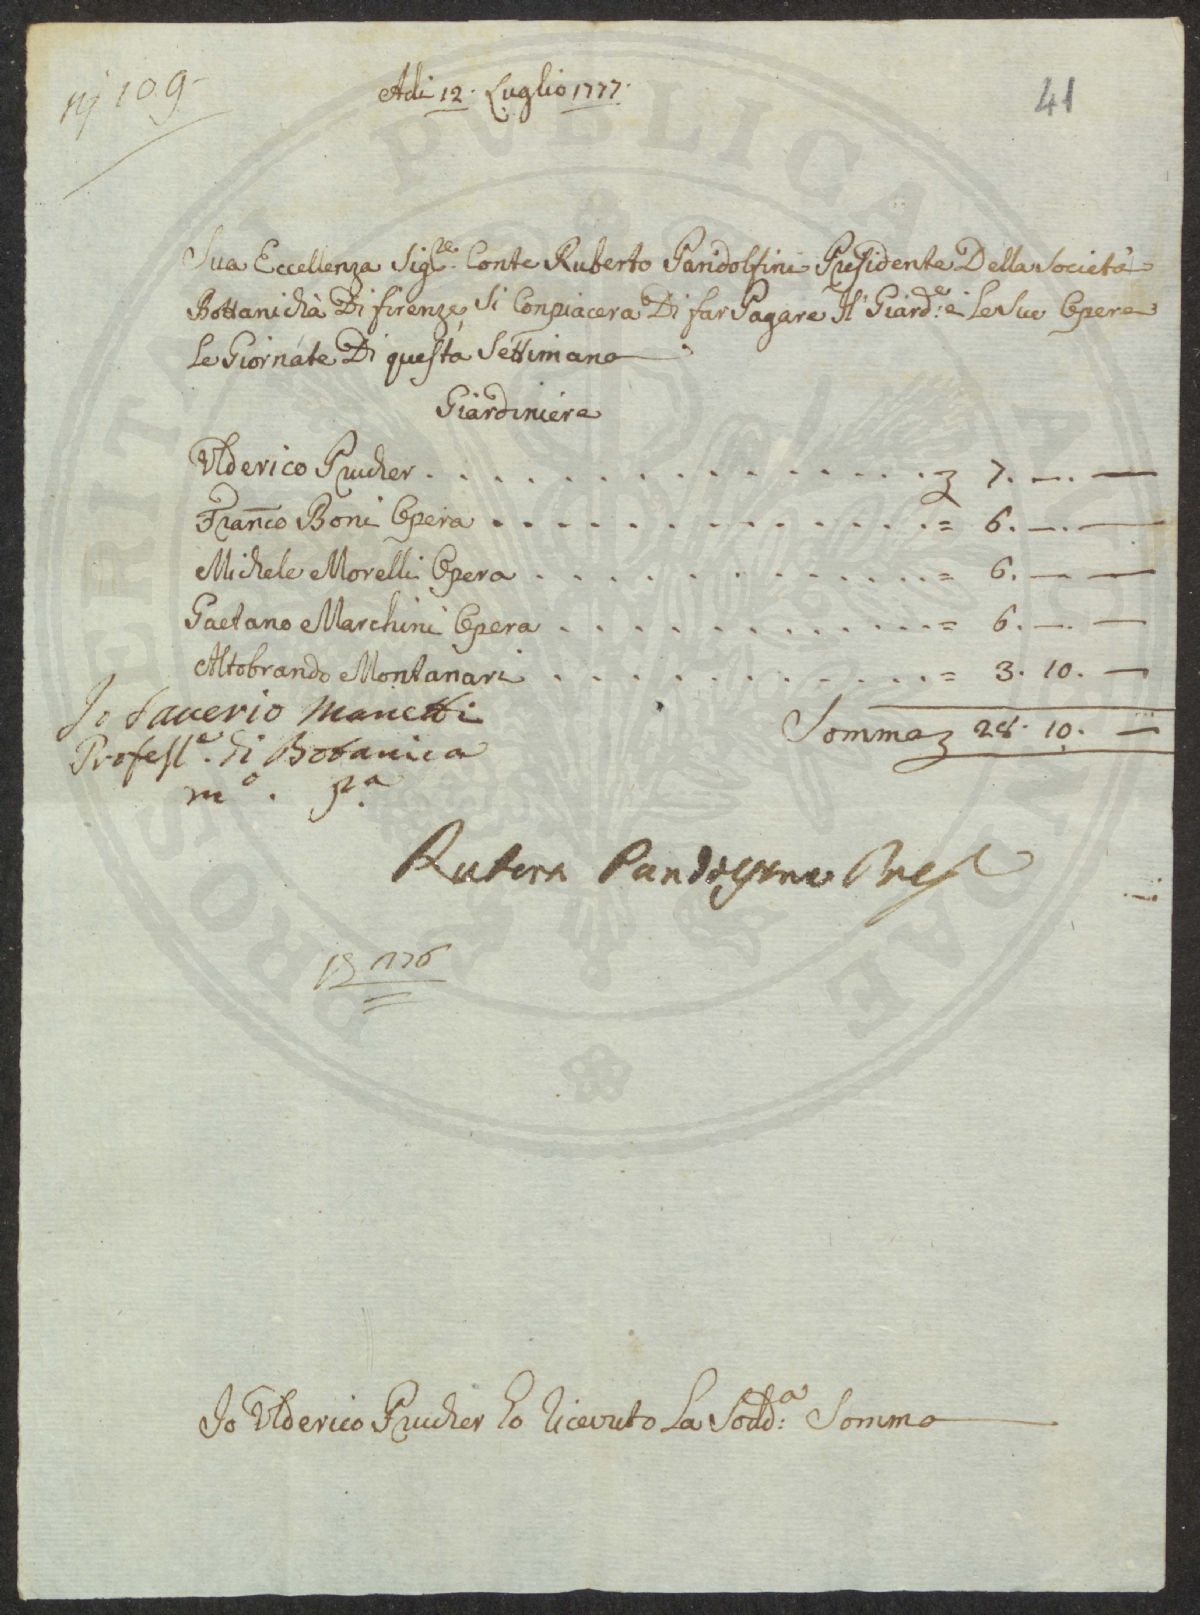 109
Adi 12. Luglio 1777.
41
Sua Eccellenza Sigre. Conte Ruberto Pandolfini Presidente Della Società
Bottanichà Di firenze, Si Conpiacera Di far Pagare Il Giarde: e Le Sue Opere
Le Giornate Di questa Settimana
Giardiniere
Ulderico Prucher . . . . . . . . . . . . . . . . . 7. —. —
Franco Boni Opera . . . . . . . . . . . . . . = 6. —. —
Michele Morelli Opera . . . . . . . . . . . . = 6. — —
Gaetano Marchini Opera . . . . . . . . . . . . = 6. —. —
Altobrando Montanari . . . . . . . . . . . . = 3. 10. —
Io Saverio Manetti
Somma 28. 10. —
Professe. di Botanica
mo. pa.
Ruberto Pandolfini Pres
1776
Io Ulderico Prucher ho Ricevuto La Sodda: Somma
PROSPERITATI PUBLICAE AUDAE